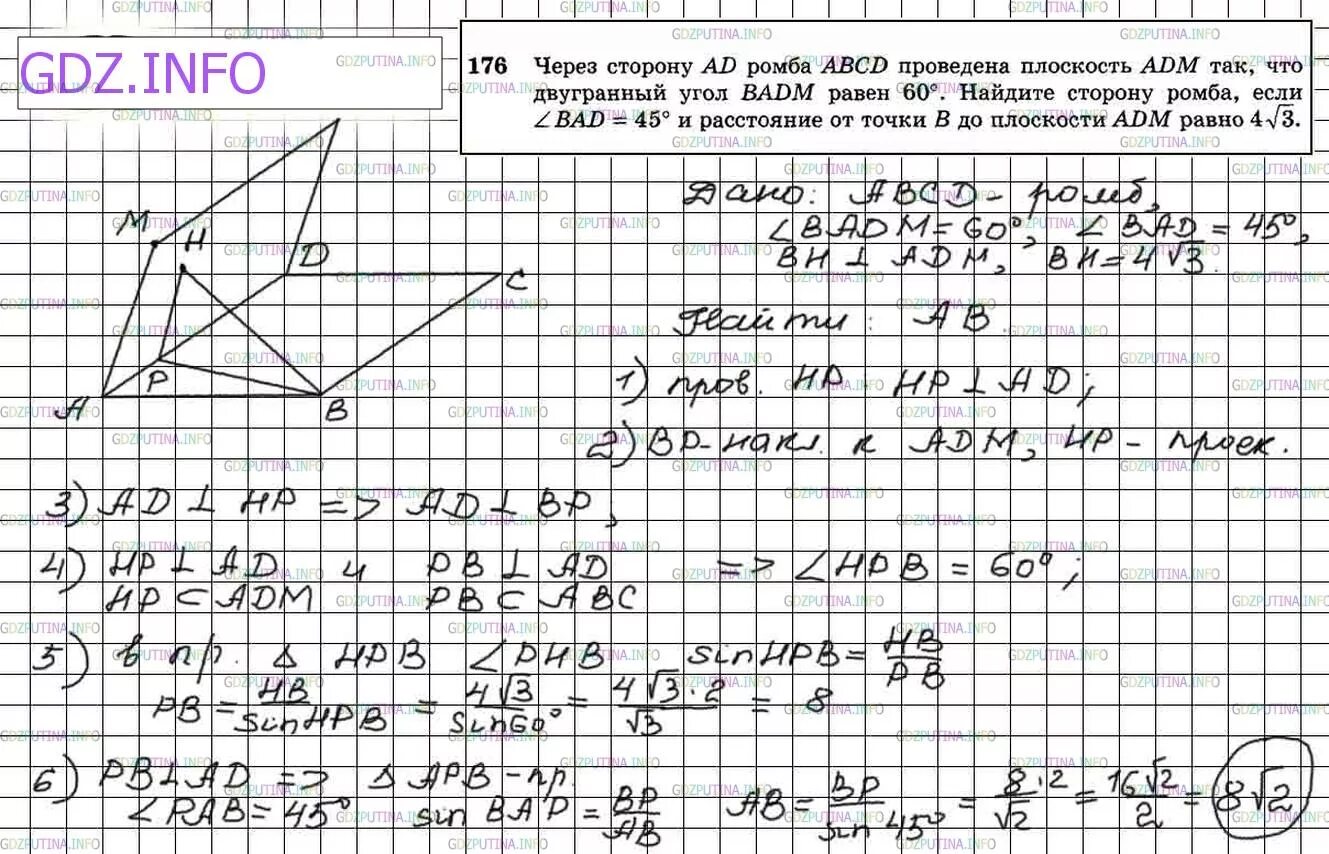 GDZ.INFO
176 Через сторону AD ромба ABCD проведена плоскость ADM так, что
двугранный угол BADM равен 60°. Найдите сторону ромба, если
∠BAD = 45° и расстояние от точки B до плоскости ADM равно 4√3.
Дано: ABCD - ромб,
∠BADM = 60°, ∠BAD = 45°,
BH ⊥ ADM, BH = 4√3.
Найти: AB.
M
H
D
C
P
A
B
1) пров. HP: HP ⊥ AD;
2) BP - накл. к ADM, HP - проек.
3) AD ⊥ HP => AD ⊥ BP,
4) HP ⊥ AD и PB ⊥ AD => ∠HPB = 60°;
HP ⊂ ADM PB ⊂ ABC
5) в пр. Δ HPB ∠PHB sin HPB = HB/PB
PB = HB/sin HPB = 4√3/sin 60° = 4√3·2/√3 = 8
6) PB ⊥ AD => Δ APB - пр.
∠PAB = 45° sin BAP = BP/AB AB = BP/sin 45° = 8·2/√2 = 16√2/2 = 8√2
GDZPUTINA.INFO